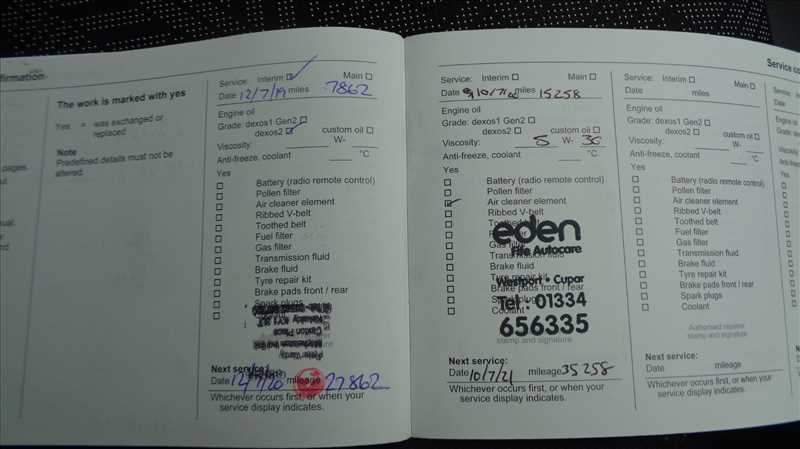 firmation
The work is marked with yes
Yes = was exchanged or
replaced
Note
Predefined details must not be
altered.
pages
Service: Interim Main
Date 12/7/19 miles 7862
Engine oil
Grade: dexos1 Gen2
dexos2 custom oil
Viscosity: W-
Anti-freeze, coolant °C
Yes
Battery (radio remote control)
Pollen filter
Air cleaner element
Ribbed V-belt
Toothed belt
Fuel filter
Gas filter
Transmission fluid
Brake fluid
Tyre repair kit
Brake pads front / rear
Spark plugs
Next service:
Date mileage 27862
Whichever occurs first, or when your
service display indicates.
Service: Interim Main
Date 10/7/20 miles 15258
Engine oil
Grade: dexos1 Gen2
dexos2 custom oil
Viscosity: 5 W- 30
Anti-freeze, coolant °C
Yes
Battery (radio remote control)
Pollen filter
Air cleaner element
Ribbed V-belt
Toothed belt
eden
Fife Autocare
Brake fluid
Tyre repair kit
Westport • Cupar
Brake pads front / rear
Tel • 01334
656335
Coolant
stamp and signature
Next service:
Date 10/7/21 mileage 35258
Whichever occurs first, or when your
service display indicates.
Service co
Service: Interim Main
Date miles
Engine oil
Grade: dexos1 Gen2
dexos2 custom oil
Viscosity: W-
Anti-freeze, coolant °C
Yes
Battery (radio remote control)
Pollen filter
Air cleaner element
Ribbed V-belt
Toothed belt
Fuel filter
Gas filter
Transmission fluid
Brake fluid
Tyre repair kit
Brake pads front / rear
Spark plugs
Coolant
Authorised repairer
stamp and signature
Next service:
Date mileage
Whichever occurs first, or when your
service display indicates.